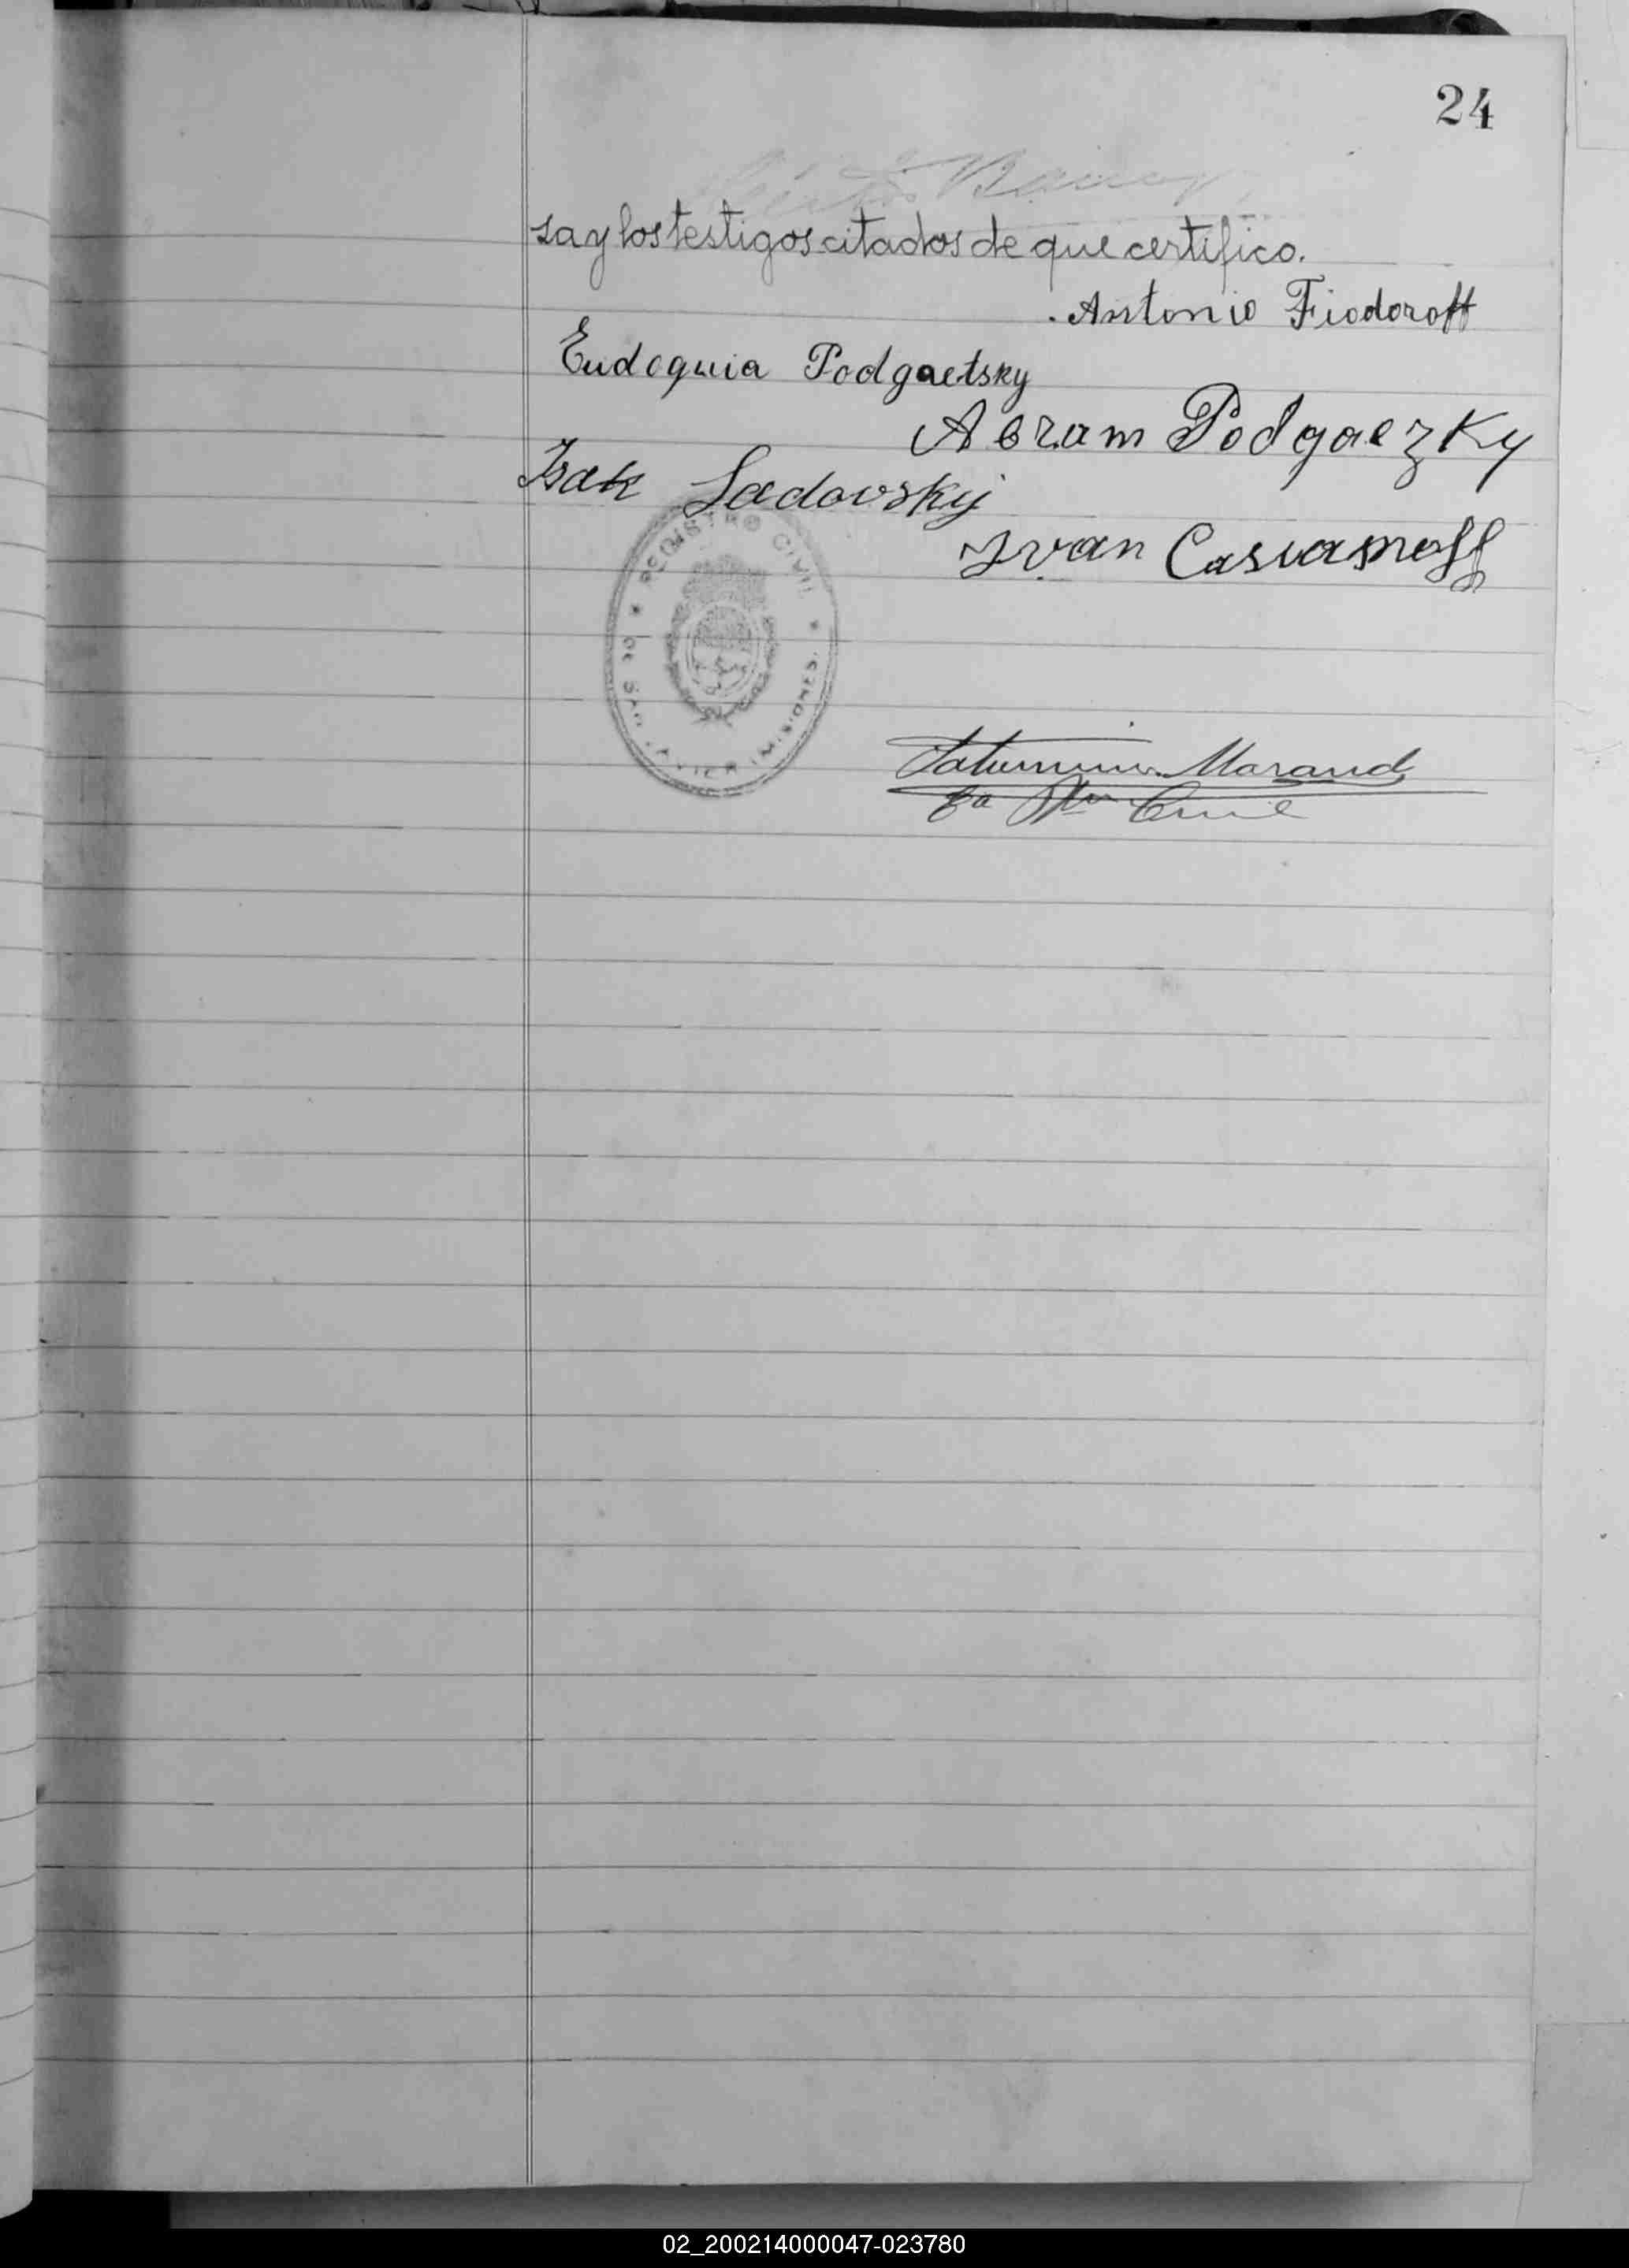 24
sa y los testigos citados de que certifico.
Antonio Fiodoroff
Eudoquia Podgaetsky
Abram Podgaezky
Isak Sadovskij
Ivan Casianoff
REGISTRO CIVIL
DE SAN JAVIER (MISIONES)
02_200214000047-023780